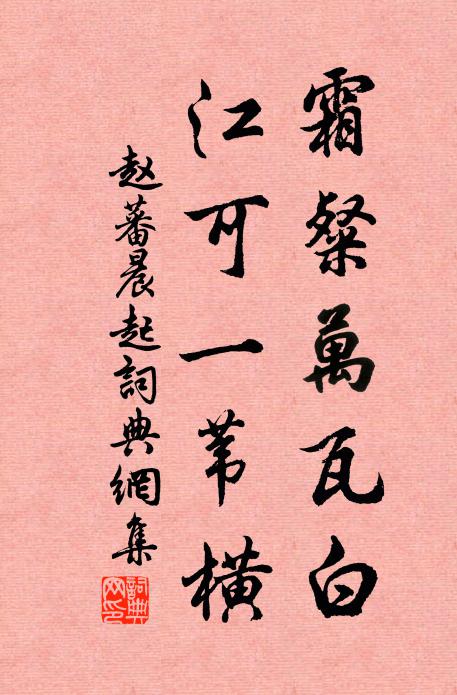 霜粲萬瓦白
江可一苇橫
赵蕃晨起詞典網集
詞典網印